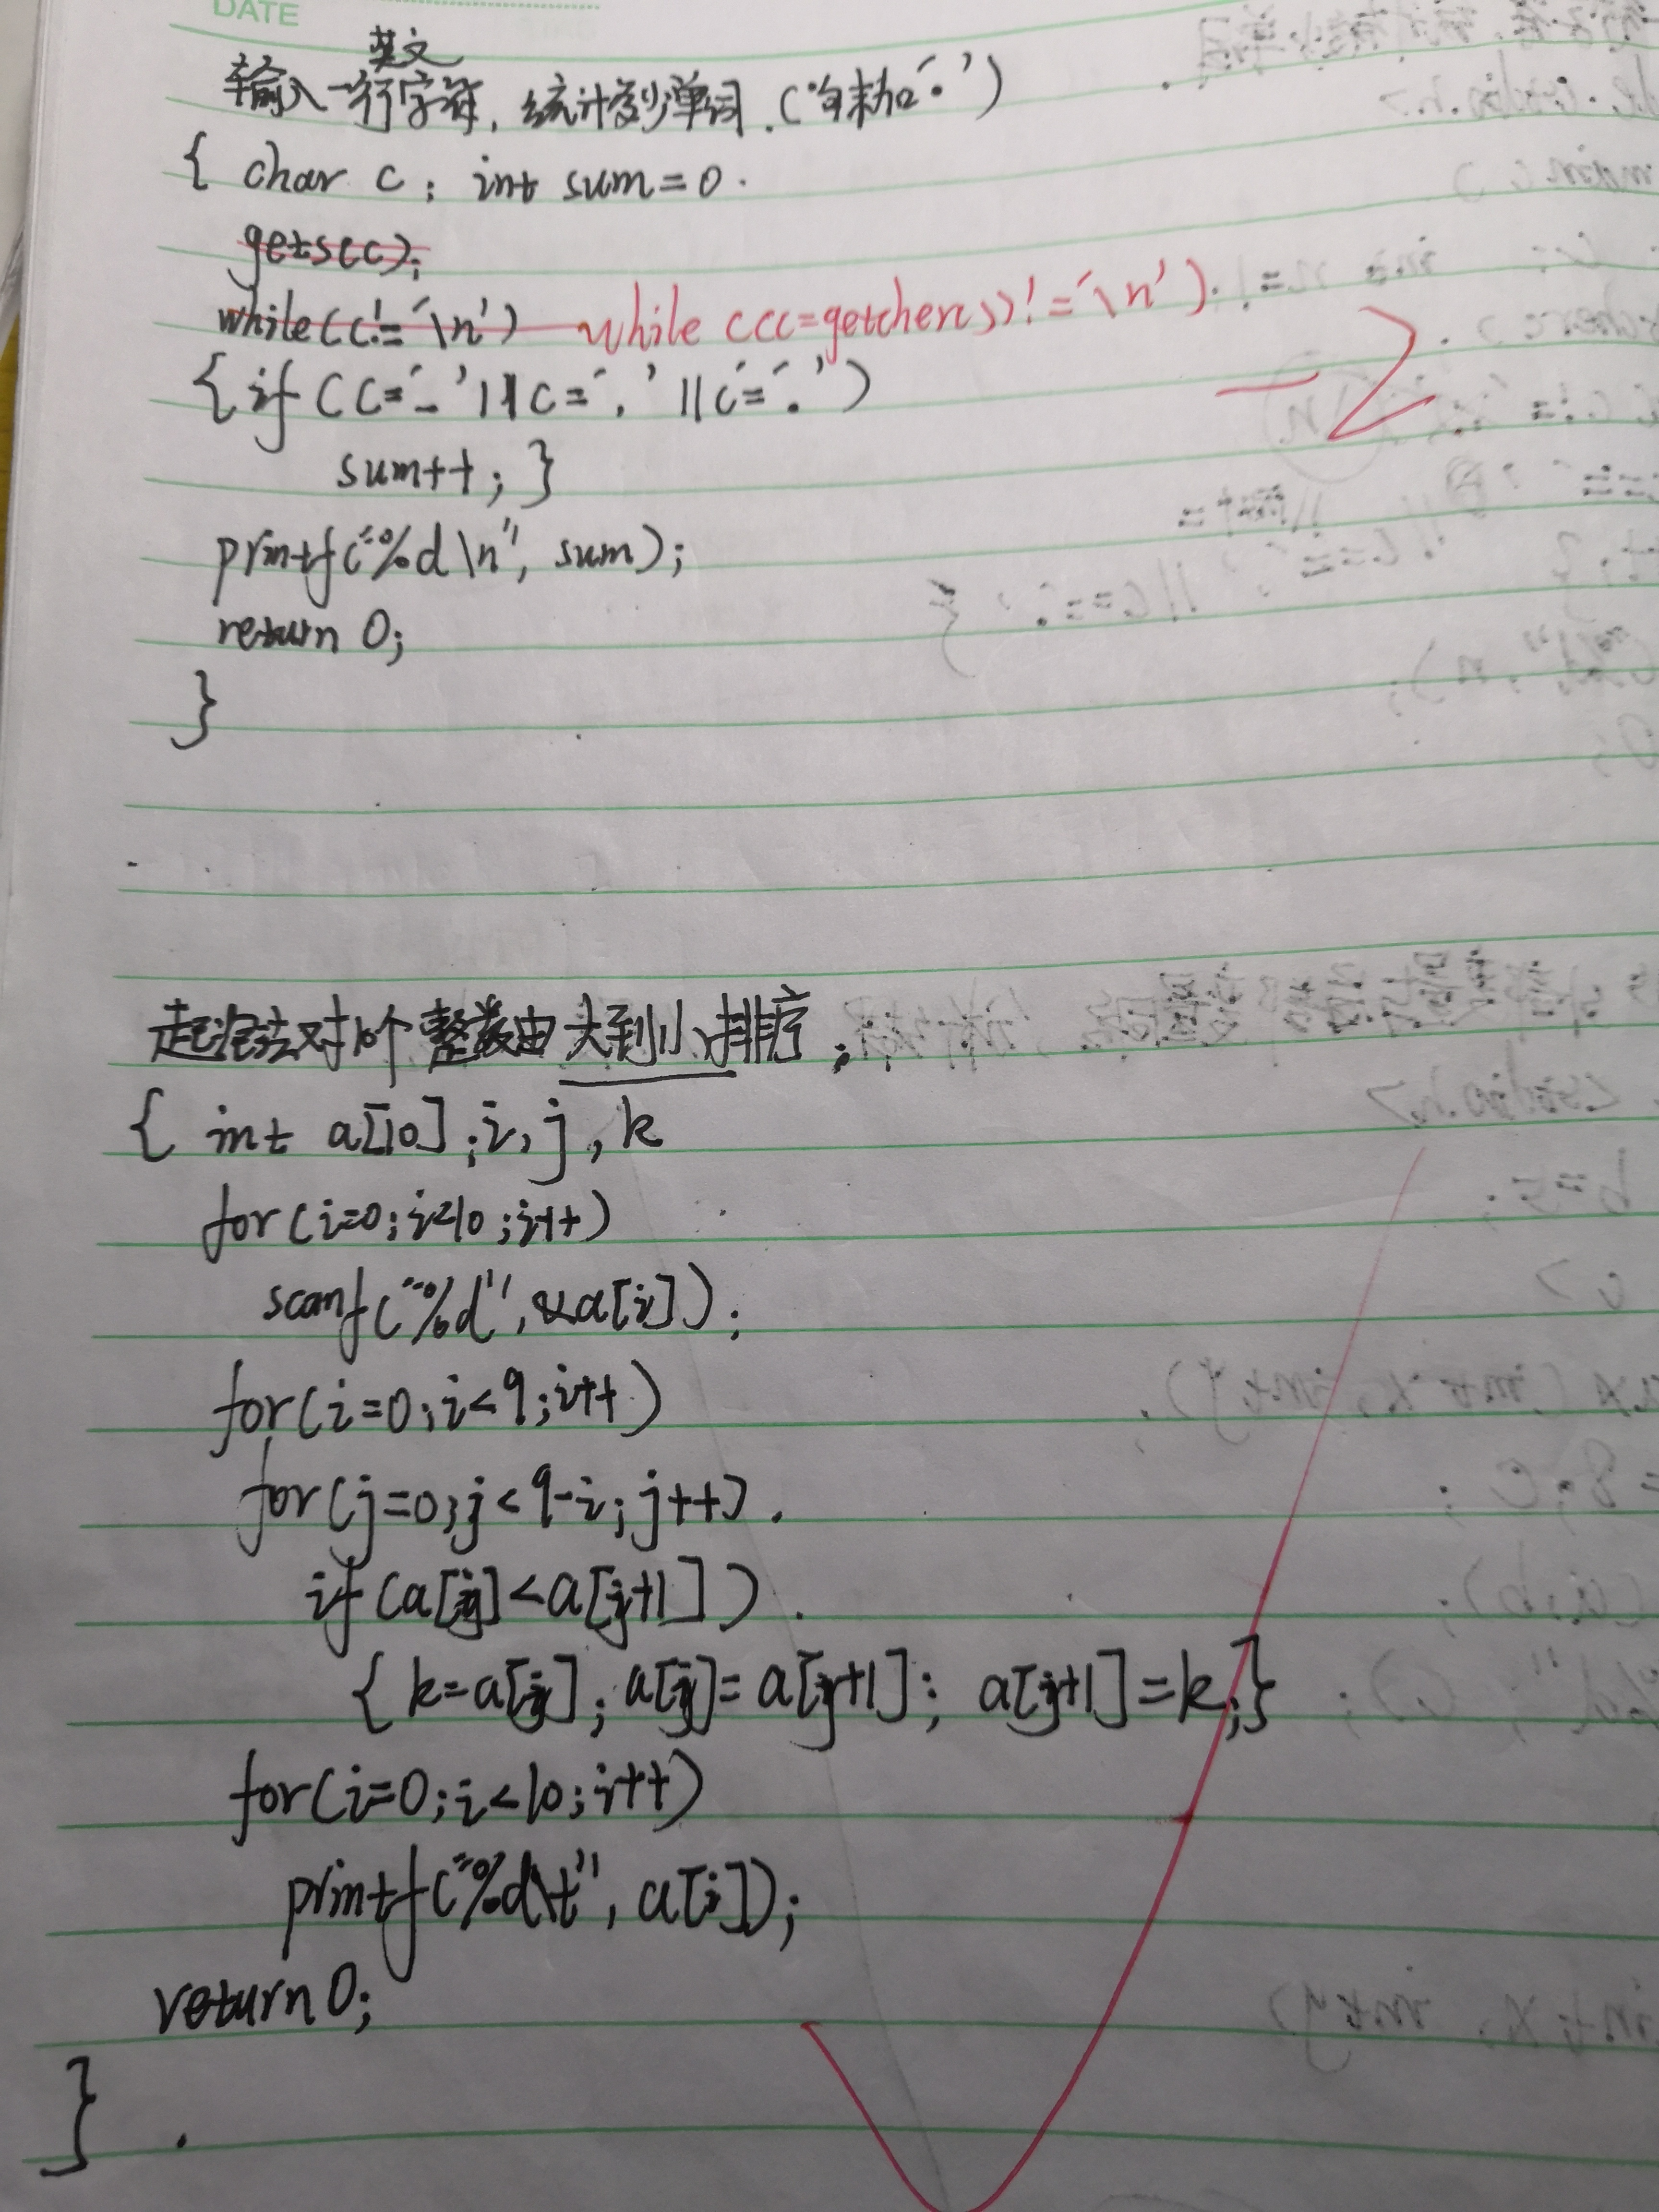 DATE
英文
输入一行字符,统计多少单词.(句末加'.')
{ char c; int sum=0.
gets(c);
while(c!='\n') while ((c=getcher())!='\n')
{if (c='_'||c=','||c='.')
-2
sum++;}
printf("%d\n", sum);
return 0;
}
起泡法对10个整数由大到小排序;
{ int a[10];i,j,k
for(i=0;i<10;i++)
scanf("%d",&a[i]);
for(i=0;i<9;i++)
for(j=0;j<9-i;j++)
if(a[j]<a[j+1])
{k=a[j];a[j]=a[j+1];a[j+1]=k;}
for(i=0;i<10;i++)
printf("%d\t",a[i]);
return 0;
}